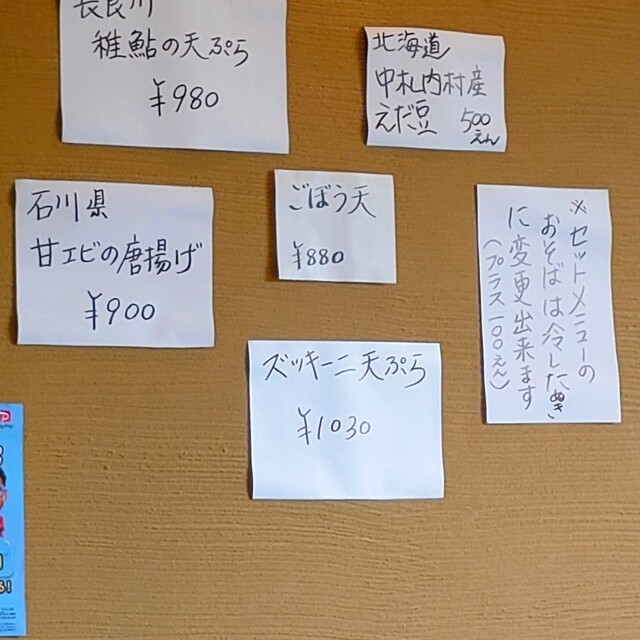 長良川
稚鮎の天ぷら
¥980
北海道
中札内村産
えだ豆 500
えん
石川県
甘エビの唐揚げ
¥900
ごぼう天
¥880
※セットメニューの
おそばは冷したぬき
に変更出来ます
(プラス一〇〇えん)
ズッキーニ天ぷら
¥1030